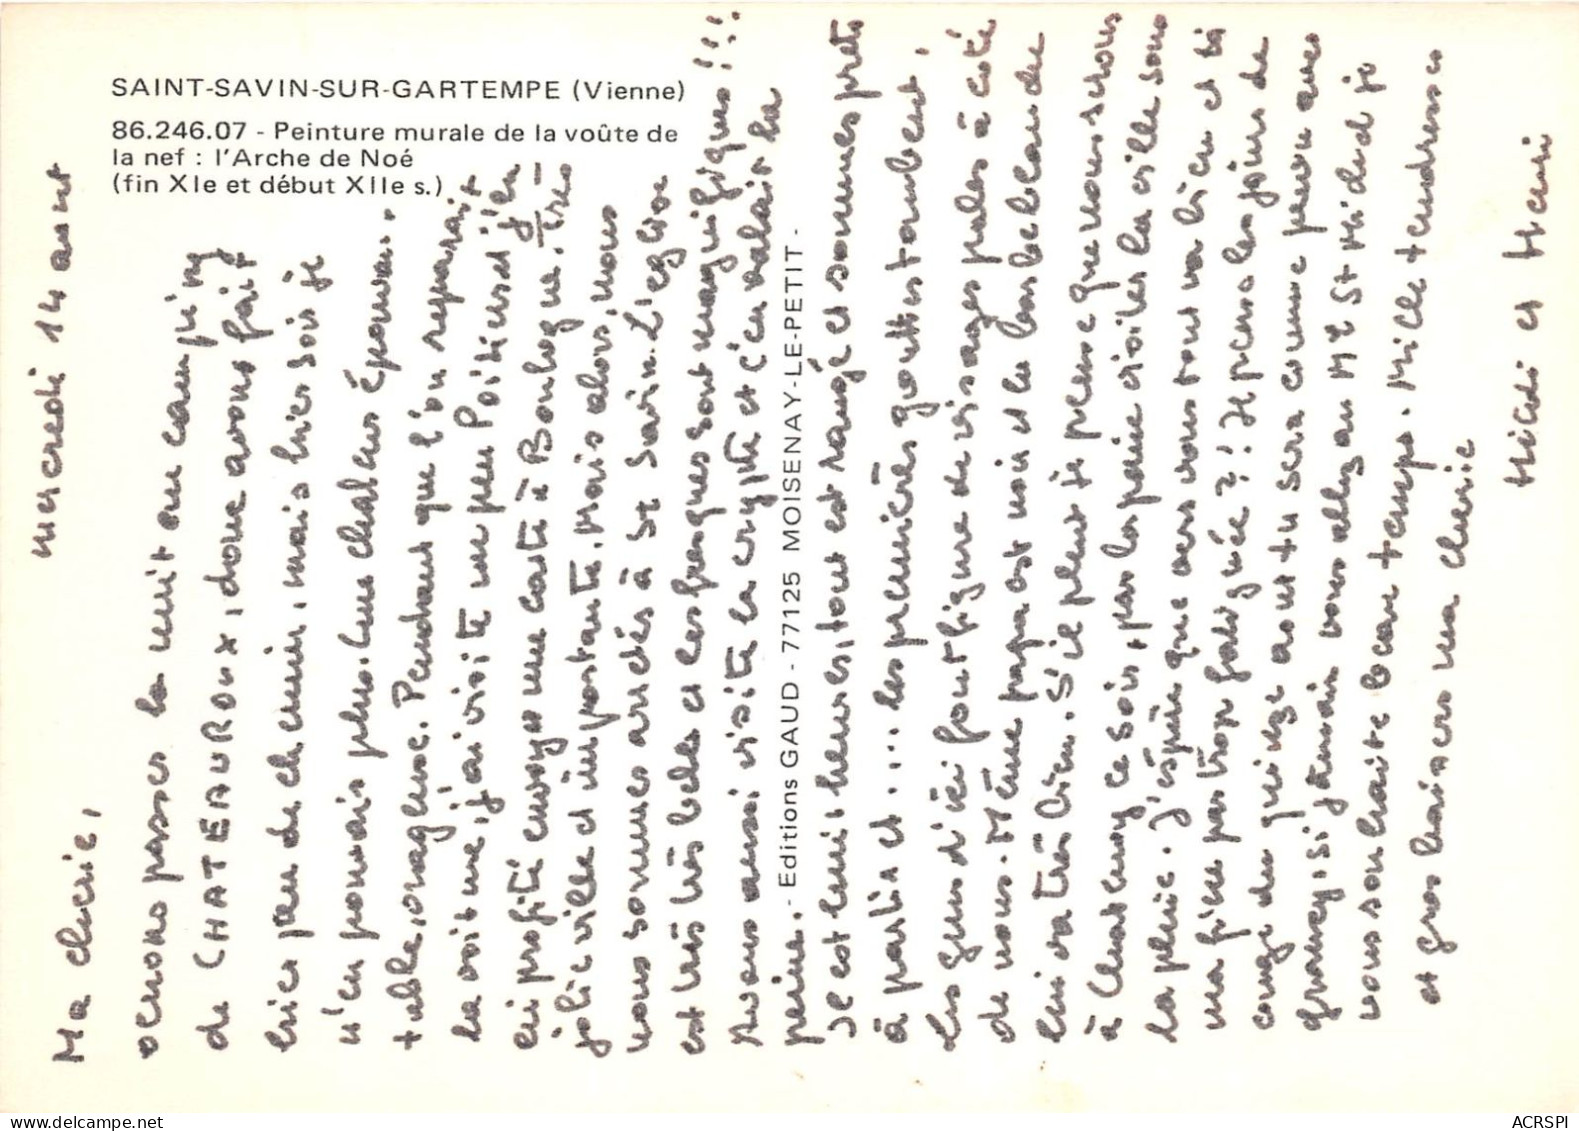 SAINT-SAVIN-SUR-GARTEMPE (Vienne)
86.246.07 - Peinture murale de la voûte de
la nef : l'Arche de Noé
(fin XIe et début XIIe s.)
- Editions GAUD - 77125 MOISENAY-LE-PETIT -
mercredi 14 aout
Ma chérie,
venons passer la nuit au camping
de CHATEAUROUX, donc avons fait
hier peu de chemin, mais hier soir je
n'en pouvais plus. Une chaleur épouvan-
table, orageuse. Pendant que l'on réparait
la voiture, j'ai visité un peu Poitiers et j'en
ai profité envoyer une carte à Boulogne. Très
jolie ville et importante. Mais alors, nous
nous sommes arrêtés à St Savin. L'église
est très belle et les fresques sont magnifiques !!!
Avons aussi visité la crypte et c'en valait la
peine.
Il est huit heures, tout est rangé et sommes prêts
à partir et ... les premières gouttes tombent.
Les gens d'ici font figure de visages pales à côté
de nous. Même papa est noir et la barbe blanche
lui va très bien. S'il pleut je pense que nous serons
à ce soir, pas la peine visiter la ville sous
la pluie. J'espère que vers vous tout va bien et
ma fille pas trop fatiguée ?! Je pense les jours de
congé du quinze aout tu sera comme
si jamais vous allez au Mt St Michel je
vous souhaite beau temps. Mille tendresses
et gros baisers ma chérie
et Henri
ACRSPI